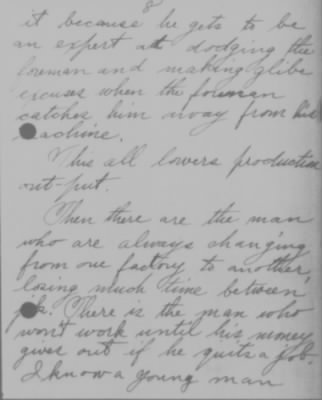 8
it because he gets to be
an expert at dodging the
foreman and making glibe
excuses when the foreman
catches him away from his
machine.
This all lowers production
out-put.
Then there are the man
who are always changing
from one factory to another,
losing much time between
job. There is the man who
won't work until his money
giver out if he quits a job.
I know a young man